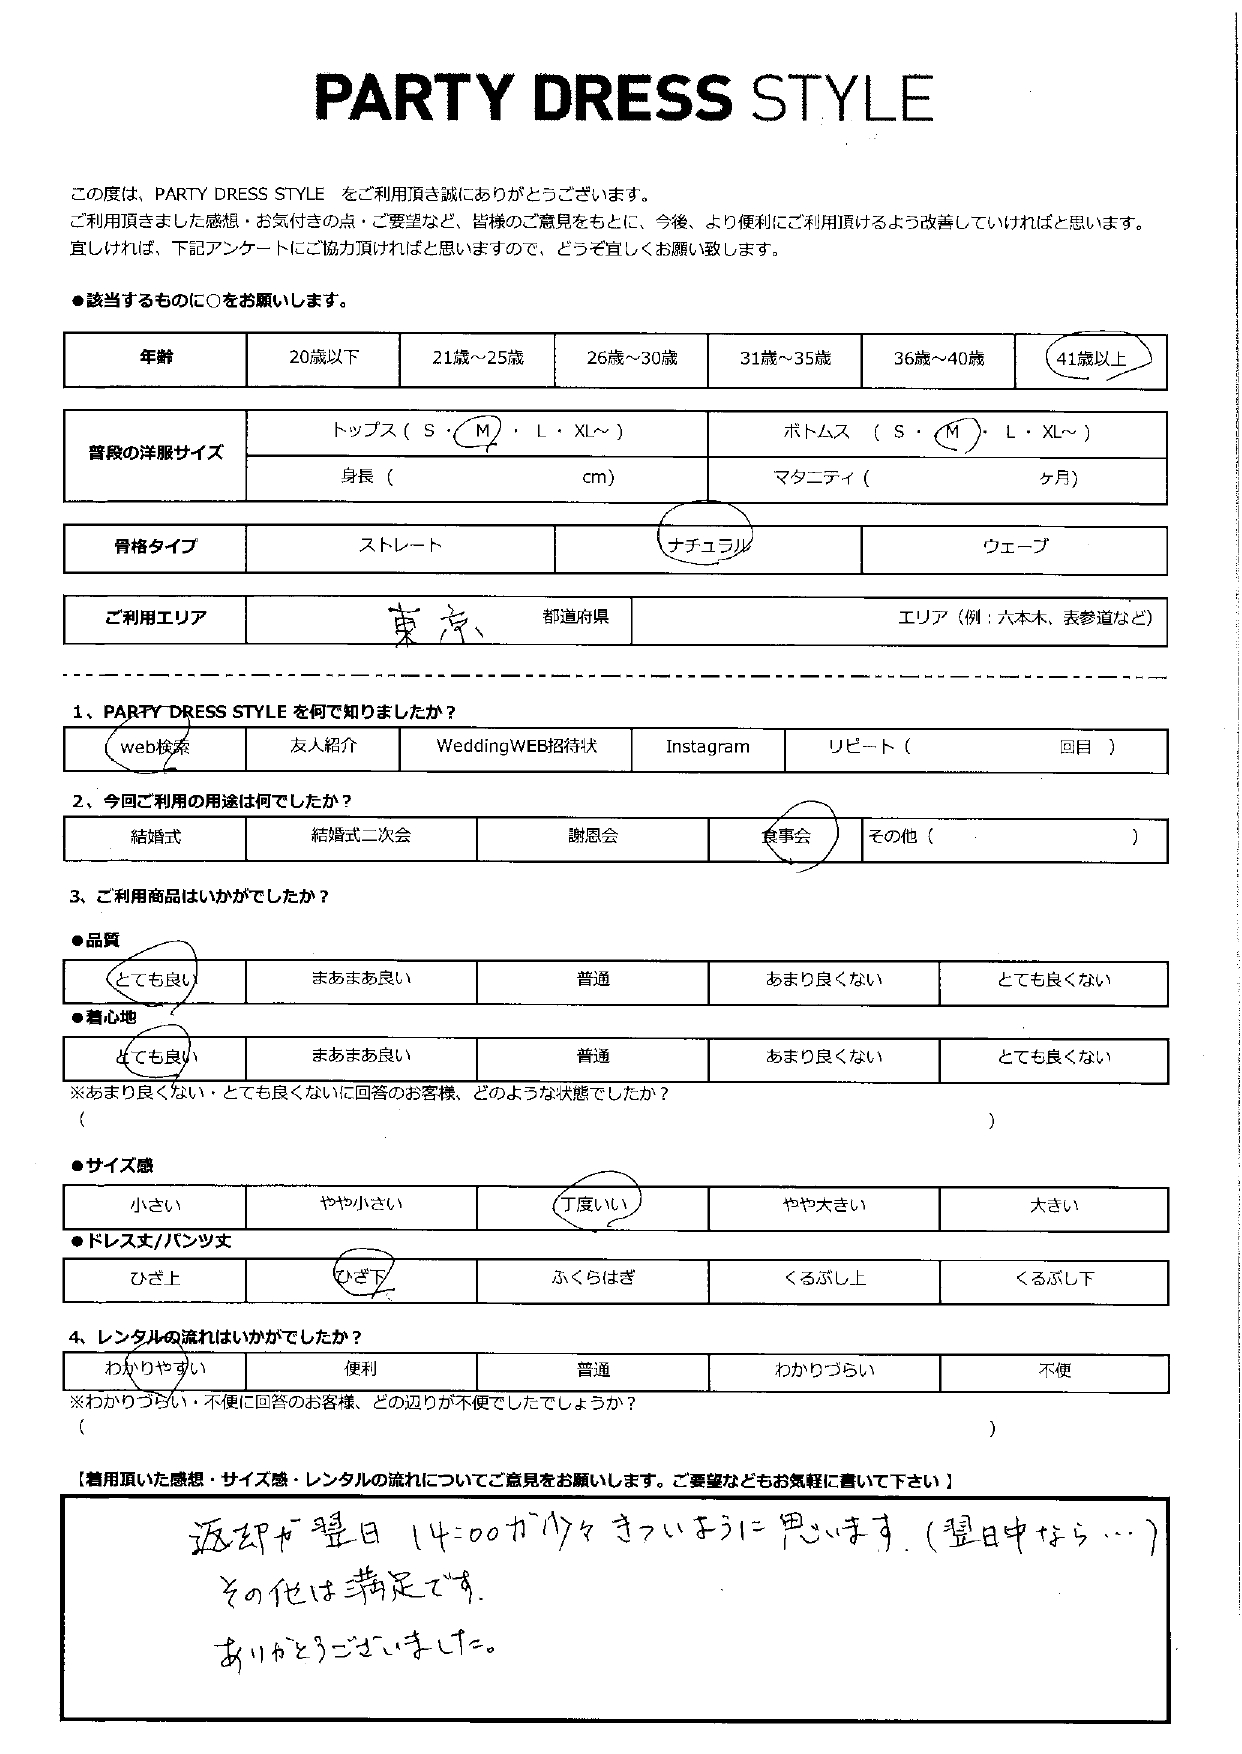 PARTY DRESS STYLE
この度は、PARTY DRESS STYLE　をご利用頂き誠にありがとうございます。
ご利用頂きました感想・お気付きの点・ご要望など、皆様のご意見をもとに、今後、より便利にご利用頂けるよう改善していければと思います。
宜しければ、下記アンケートにご協力頂ければと思いますので、どうぞ宜しくお願い致します。
●該当するものに○をお願いします。
年齢 20歳以下 21歳～25歳 26歳～30歳 31歳～35歳 36歳～40歳 41歳以上
普段の洋服サイズ トップス ( S ・ M ・ L ・ XL～ ) ボトムス ( S ・ M ・ L ・ XL～ )
身長 ( cm) マタニティ ( ケ月)
骨格タイプ ストレート ナチュラル ウェーブ
ご利用エリア 東京 都道府県 エリア（例：六本木、表参道など）
1、PARTY DRESS STYLE を何で知りましたか？
web検索 友人紹介 WeddingWEB招待状 Instagram リピート ( 回目 )
2、今回ご利用の用途は何でしたか？
結婚式 結婚式二次会 謝恩会 食事会 その他 ( )
3、ご利用商品はいかがでしたか？
●品質
とても良い まあまあ良い 普通 あまり良くない とても良くない
●着心地
とても良い まあまあ良い 普通 あまり良くない とても良くない
※あまり良くない・とても良くないに回答のお客様、どのような状態でしたか？
( )
●サイズ感
小さい やや小さい 丁度いい やや大きい 大きい
●ドレス丈/パンツ丈
ひざ上 ひざ下 ふくらはぎ くるぶし上 くるぶし下
4、レンタルの流れはいかがでしたか？
わかりやすい 便利 普通 わかりづらい 不便
※わかりづらい・不便に回答のお客様、どの辺りが不便でしたでしょうか？
( )
【着用頂いた感想・サイズ感・レンタルの流れについてご意見をお願いします。ご要望などもお気軽に書いて下さい】
返却が翌日 14:00が少々きついように思います.（翌日中なら…）
その他は満足です.
ありがとうございました。